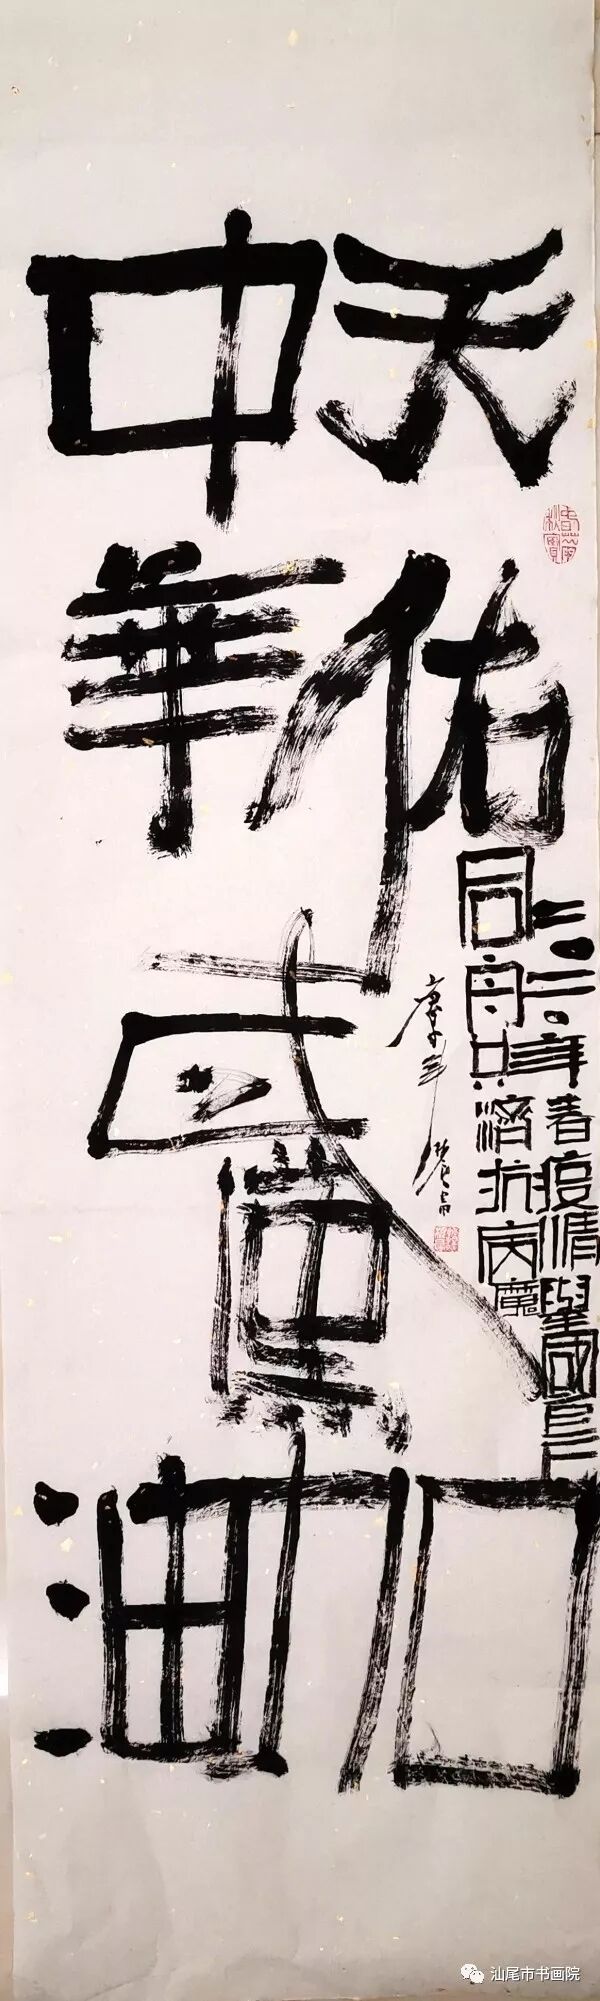 天佑
中華
武漢
加油
二〇二〇年春疫情舉國上下
同舟共濟抗病魔
庚子年
春華秋實
汕尾市书画院